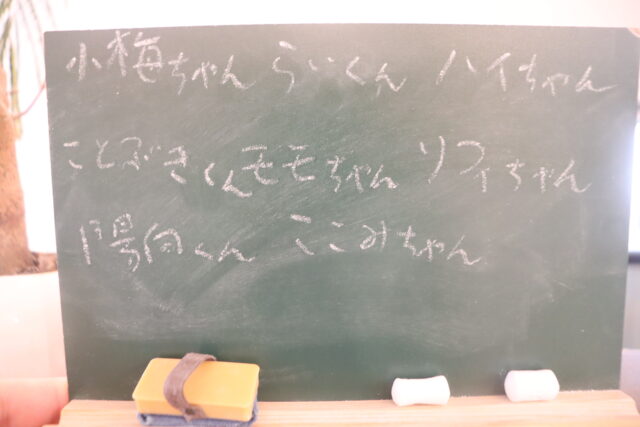 小梅ちゃん らいくん ハイちゃん
ことぶきくん モモちゃん ソフィちゃん
陽向くん ここみちゃん